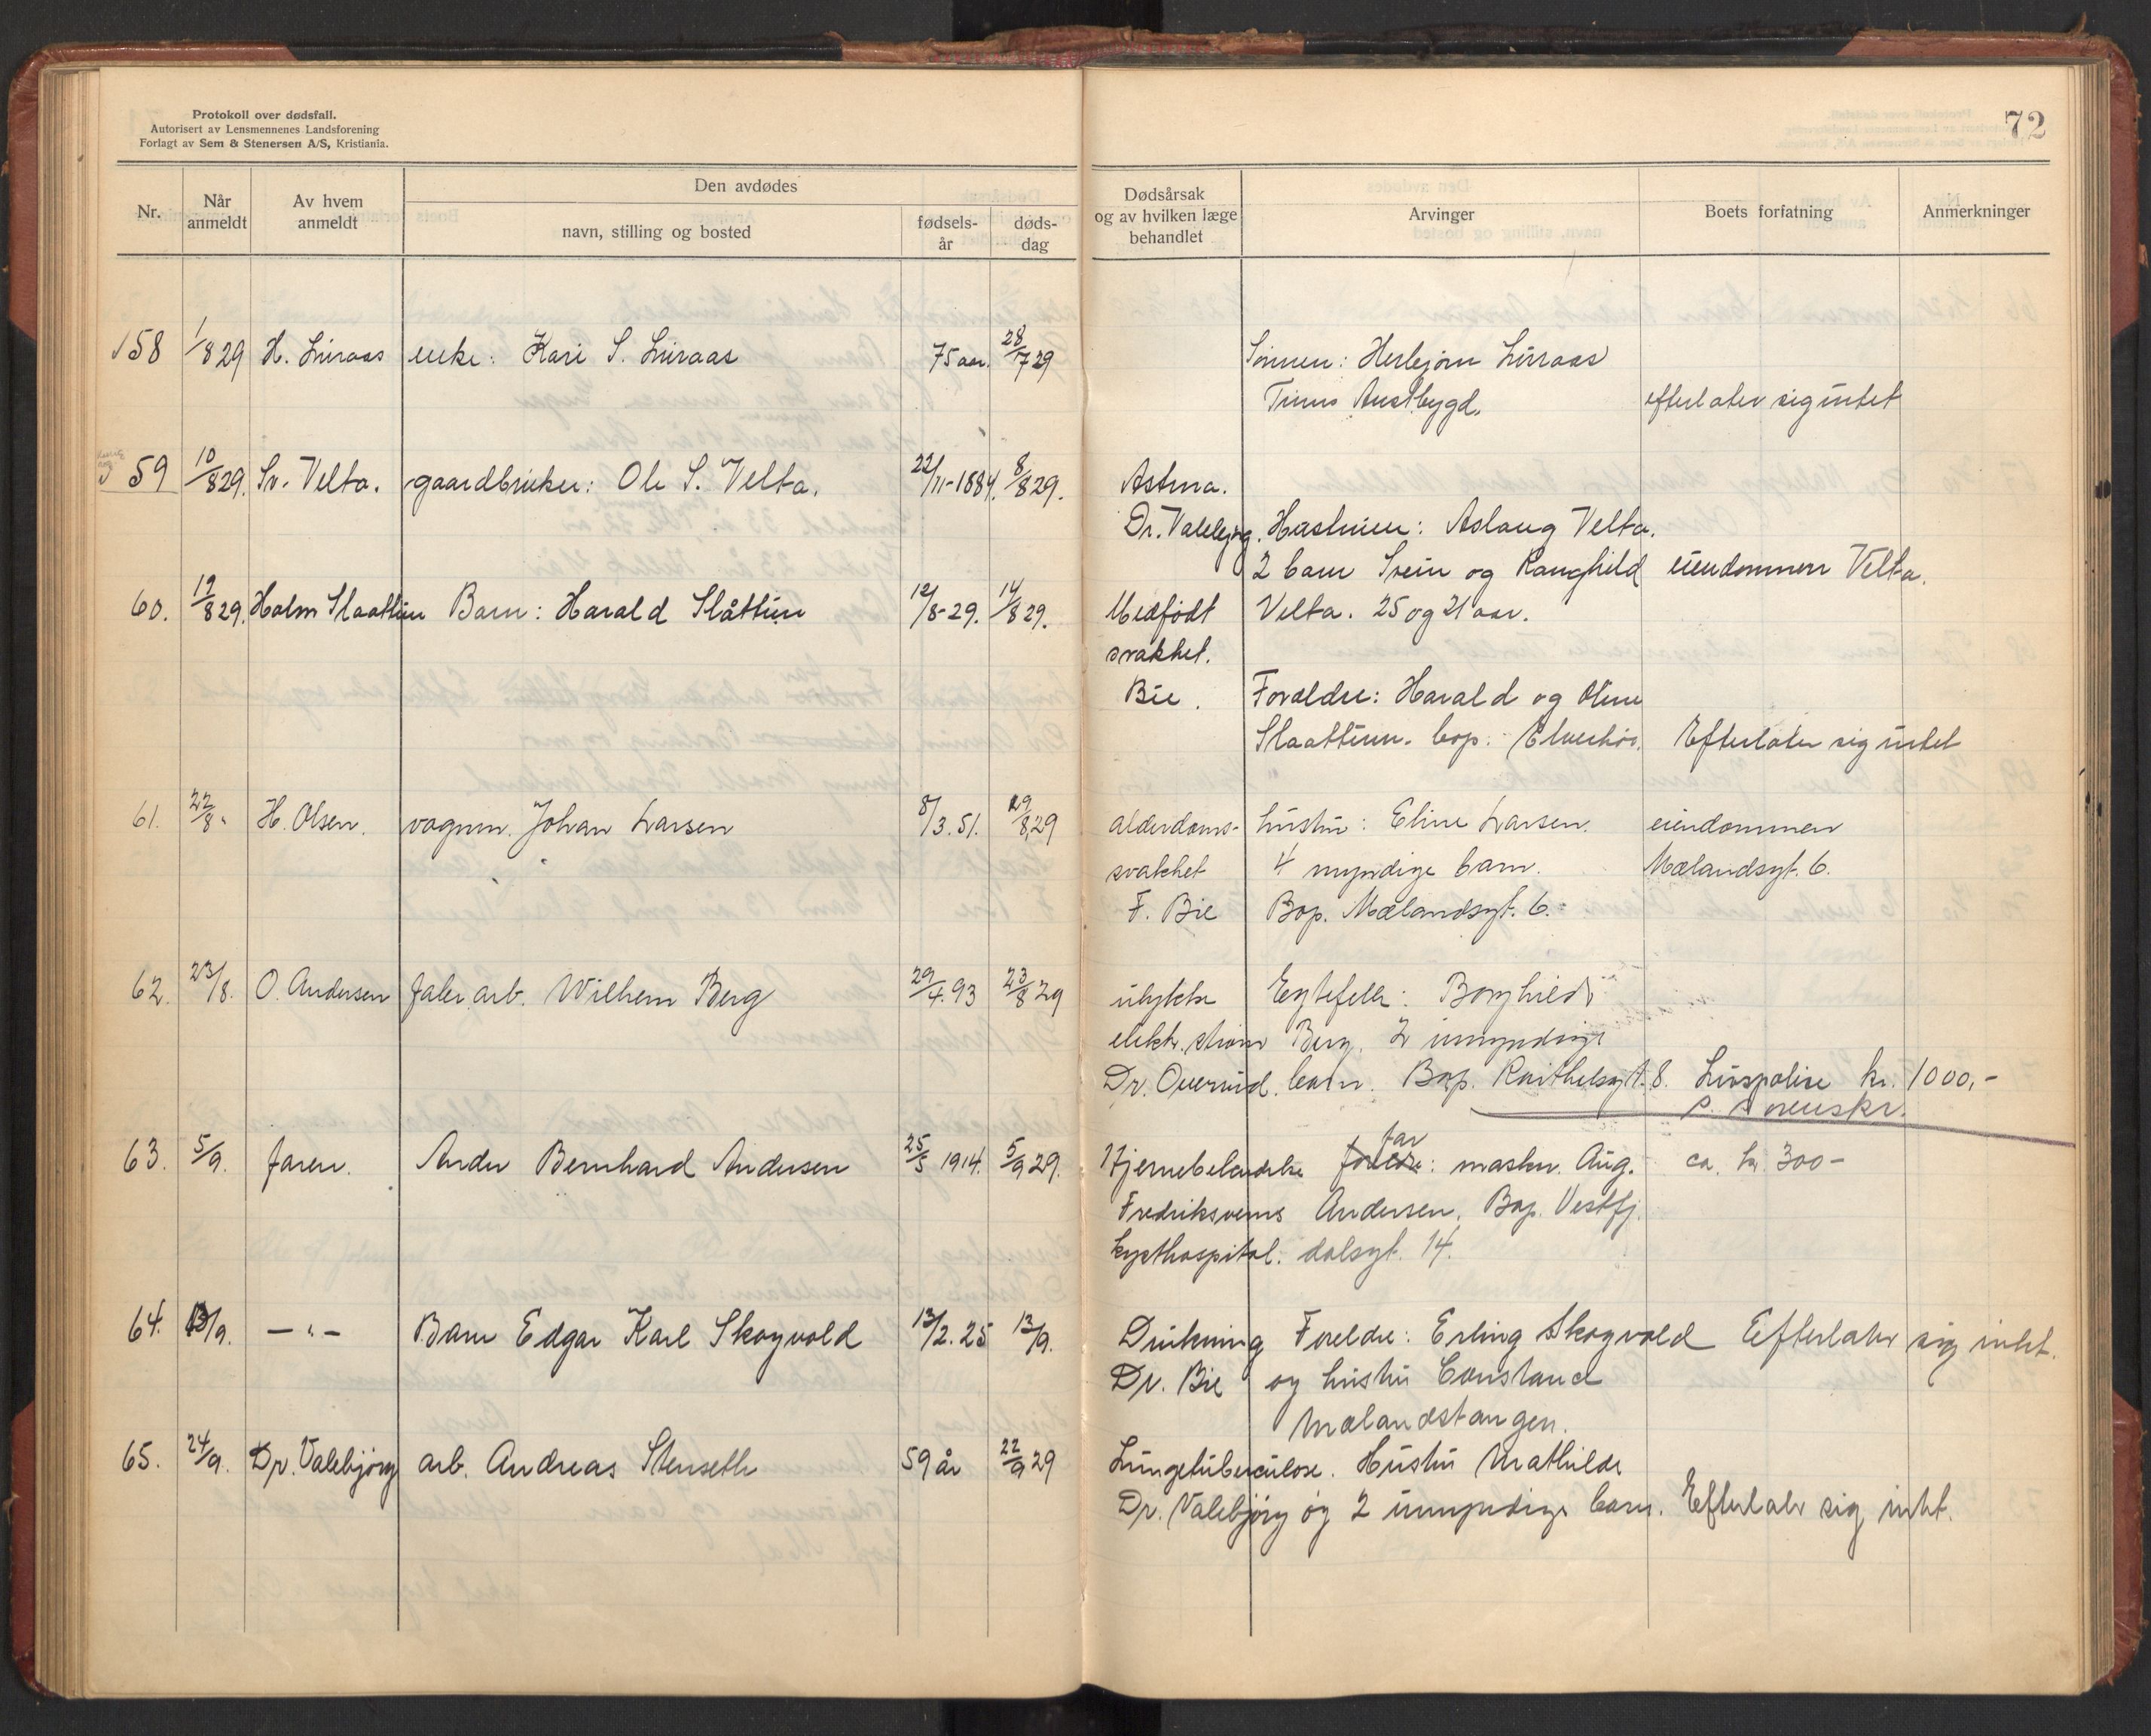 Protokoll over dødsfall.
Autorisert av Lensmennenes Landsforening
Forlagt av Sem & Stenersen A/S, Kristiania.
72
Nr.
Når anmeldt
Av hvem anmeldt
Den avdødes
navn, stilling og bosted
fødsels-år
døds-dag
Dødsårsak og av hvilken læge behandlet
Arvinger
Boets forfatning
Anmerkninger
58 1/8 29 H. Luraas enke: Kari S. Luraas 75 aar. 28/7 29 Sönnen: Herbjörn Luraas
Tinns Austbygd. efterlater sig intet
59 10/8 29. Sv. Velta. gaardbruker: Ole S. Velta. 22/11-1884. 8/8 29. Astma.
Dr. Valebjørg. Hustruen: Aslaug Velta.
2 barn Svein og Ranghild eiendommen Velta.
60. 19/8 29. Holm Slaattun Barn: Harald Slåttun 12/8-29. 14/8 29. Medfödt Velta. 25 og 21 aar.
svakhet.
Bie. Forældre: Harald og Oline
Slaattun. bop. Elverhöi. Efterlater sig intet
61. 22/8. H. Olsen. vognm. Johan Larsen 8/3. 51. 19/8 29 alderdoms- hustru: Eline Larsen. eiendommen
svakhet 4 myndige barn. Mælandsgt. 6.
F. Bie Bop. Mælandsgt. 6.
62. 23/8. O. Andersen fabr. arb. Wilhem Berg 29/4. 93 23/8 29 ulykke Egtefelle: Borghild
elektr. ström Berg. 2 umyndige
Dr. Overrud. barn. Bop. 8. Livspolise kr. 1000,-
63. 5/9. faren. Ander Bernhard Andersen 25/5 1914. 5/9 29. Hjernebetendelse far: maskn. Aug. ca. kr. 300-
Fredriksverns Andersen. Bop. Vestfj.
kysthospital. dalsgt. 14.
64. 13/9. -"- Barn Edgar Karl Skogvold 13/2. 25 13/9. Drukning Foreldre: Erling Skogvold Efterlater sig intet.
Dr. Bie og hustru Constance
Mælandstangen.
65. 24/9. Dr. Valebjörg arb. Andreas Stenseth 59 år 22/9 29 Lungetuberculose. Hustru Mathilde
Dr. Valebjörg og 2 umyndige barn. Efterlater sig intet.